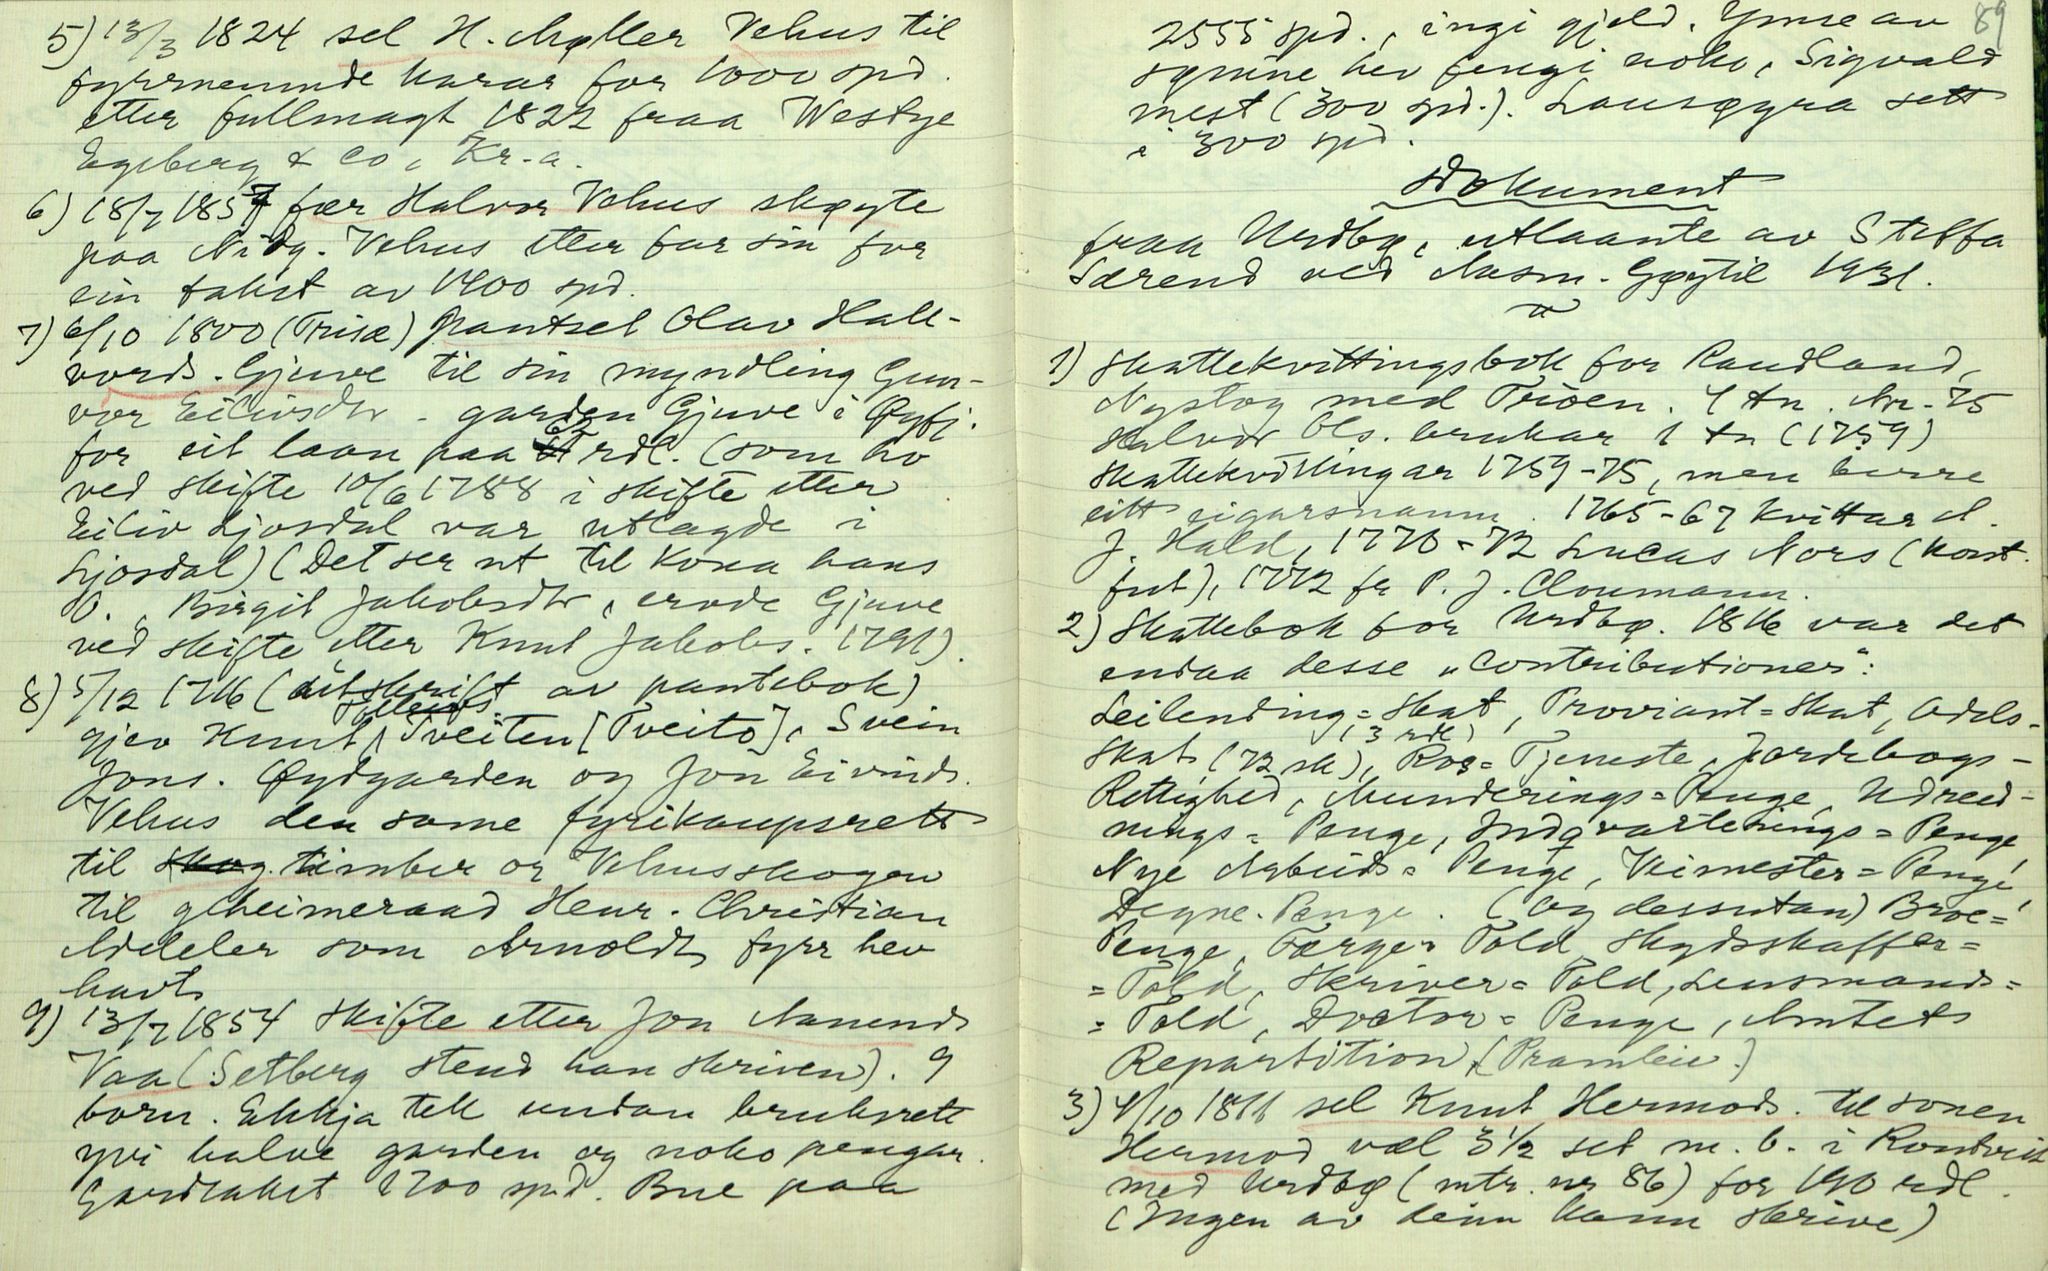 5) 13/3 1824 sel H. Møller Vehus til
fyrrnemnde karar for 1000 spd.
etter fullmagt 1822 fraa Westye
Egeberg & Co, Kr.a.
6) 18/7 1857 fær Halvor Vehus skøyte
paa Nidg. Vehus etter far sin for
ein takst av 1400 spd.
7) 6/10 1800 (Trisæ) pantsel Olav Hall-
vords. Gjuve til sin myndling Gun-
vor Eilivsdtr. garden Gjuve i Øyfj.
for eit laan paa 62 rdl. (som ho
ved skifte 10/6 1788 i skifte etter
Eiliv Ljosdal var utlagde i
Ljosdal) (Det ser ut til kona hans
O., Birgit Jakobsdtr, ervde Gjuve
ved skifte etter Knut Jakobs. 1791).
8) 5/12 1716 (utskrift av pantebok)
gjev Knut Tveiten [Tveito], Svein
Jons. Øydgarden og Jon Eivinds.
Vehus den same fyrikaupsrett
til skog. timber or Vehusskogen
til geheimeraad Henr. Christian
Adeler som Arnoldt fyrr hev
havt
9) 13/7 1854 skifte etter Jon Aanunds
Vaa (Setberg stend han skriven). 9
born. Ekkja tek undan bruksrett
yvi halve garden og noko pengar.
Gardtakst 1700 spd. Bue paa
89
2555 spd., ingi gjeld. Ymse av
sønine hev fengi noko, Sigvald
mest (300 spd.). Lausøyra sett
i 300 spd.
Dokument
fraa Urdbø, utlaante av Steffa
Særend ved Aasm. Gøytil 1931.
1) Skattekvittingsbok for Raudland,
Nystog med Trioen. 4 tn. Nr. 75
Halvor Ols. brukar 1 tn (1759)
Skattekvittingar 1759-75, men berre
eitt eigarsnamn. 1765-67 kvittar A.
J. Hald, 1770-72 Lucas Nors (konst.
fut), 1772 fr P. J. Cloumann.
2) Skattebok for Urdbø. 1816 var det
endaa desse "Contributioner":
Leilending=Skat, Proviant=Skat, Odels-
Skat (72 sk), (3 rdl) Ros=Tjeneste, Jordebogs-
Rettighed, Munderings=Penge, Udred-
nings=Penge, Indqvarterings=Penge,
Nye Arbeids=Penge, Veimester=Penge,
Degne-Penge. (Og dessutan) Broe=
Penge, Færge=Told, Skydsskaffer=
=Told, Skriver=Told, Lensmands=
=Told, Doctor=Penge, Amtets
Repartition, (Pramleie.)
3) 4/10 1811 sel Knut Hermods. til sonen
Hermod væl 3½ set m. b. i
med Urdbø (mtr. nr 86) for 190 rdl.
(Ingen av deim kann skrive)